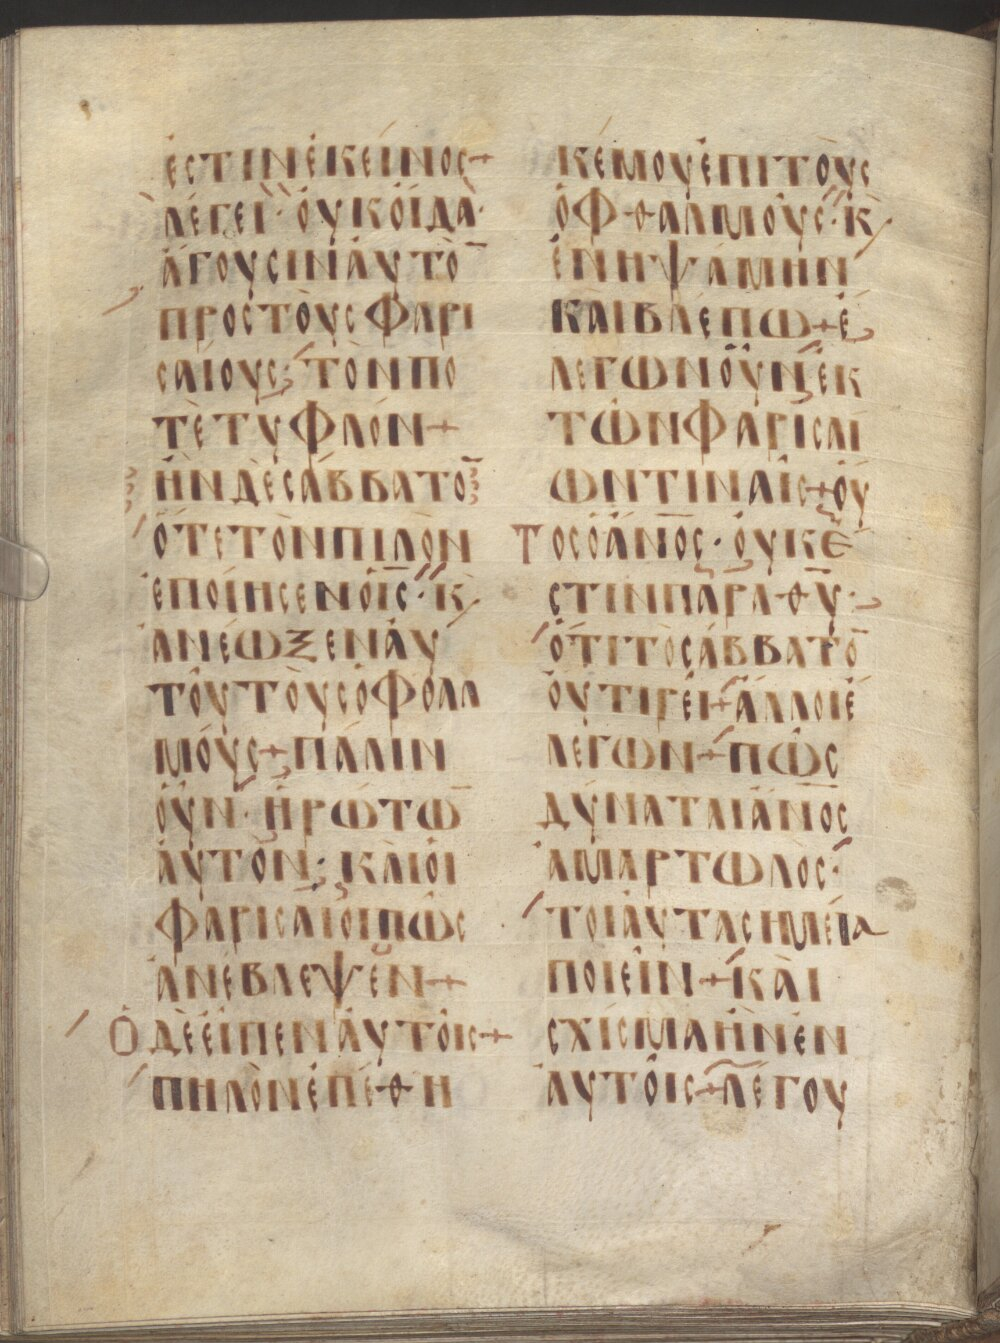 ἐστὶν ἐκεῖνος +
λέγει · οὐκ οἶδα ·
ἄγουσιν αὐτὸ̅
πρὸς τοὺς φαρι
σαίους ; τὸν πο
τὲ τυφλόν +
ἦν δὲ σάββατο̅
ὅτε τὸν πιλὸν
ἐποίησεν ὁ ι̅ς̅ · κ̀
ἀνέωξεν αυ
τοῦ τοὺς ὀφθαλ
μούς + πάλιν
οὖν · ἠρώτω̅
αὐτὸν ; καὶ οἱ
φαρισαῖοι πῶς
ἀνέβλεψεν +
Ὁ δὲ εἶπεν αὐτοῖς +
πηλὸν ἐπέθη
κέ μου ἐπὶ τοὺς
ὀφθαλμούς · κ̀
ἐνηψάμην
καὶ βλέπω + ἔ
λεγων οὖν ἐκ
τῶν φαρισαί
ων τιναίς + οὗ
Τος ὁ α̅ν̅ο̅ς̅ · οὐκ ἔ
στιν παρὰ θ̅υ̅ ·
ὅτι τὸ σάββατο̅
οὐ τιρεῖ + ἄλλοι ἔ
λεγων + πῶς
δύναται α̅ν̅ο̅ς̅
ἁμαρτωλὸς ·
τοιαῦτα σημεῖα
ποιεῖν + καὶ
σχίσμα ἦν ἐν
αὐτοῖς + λέγου